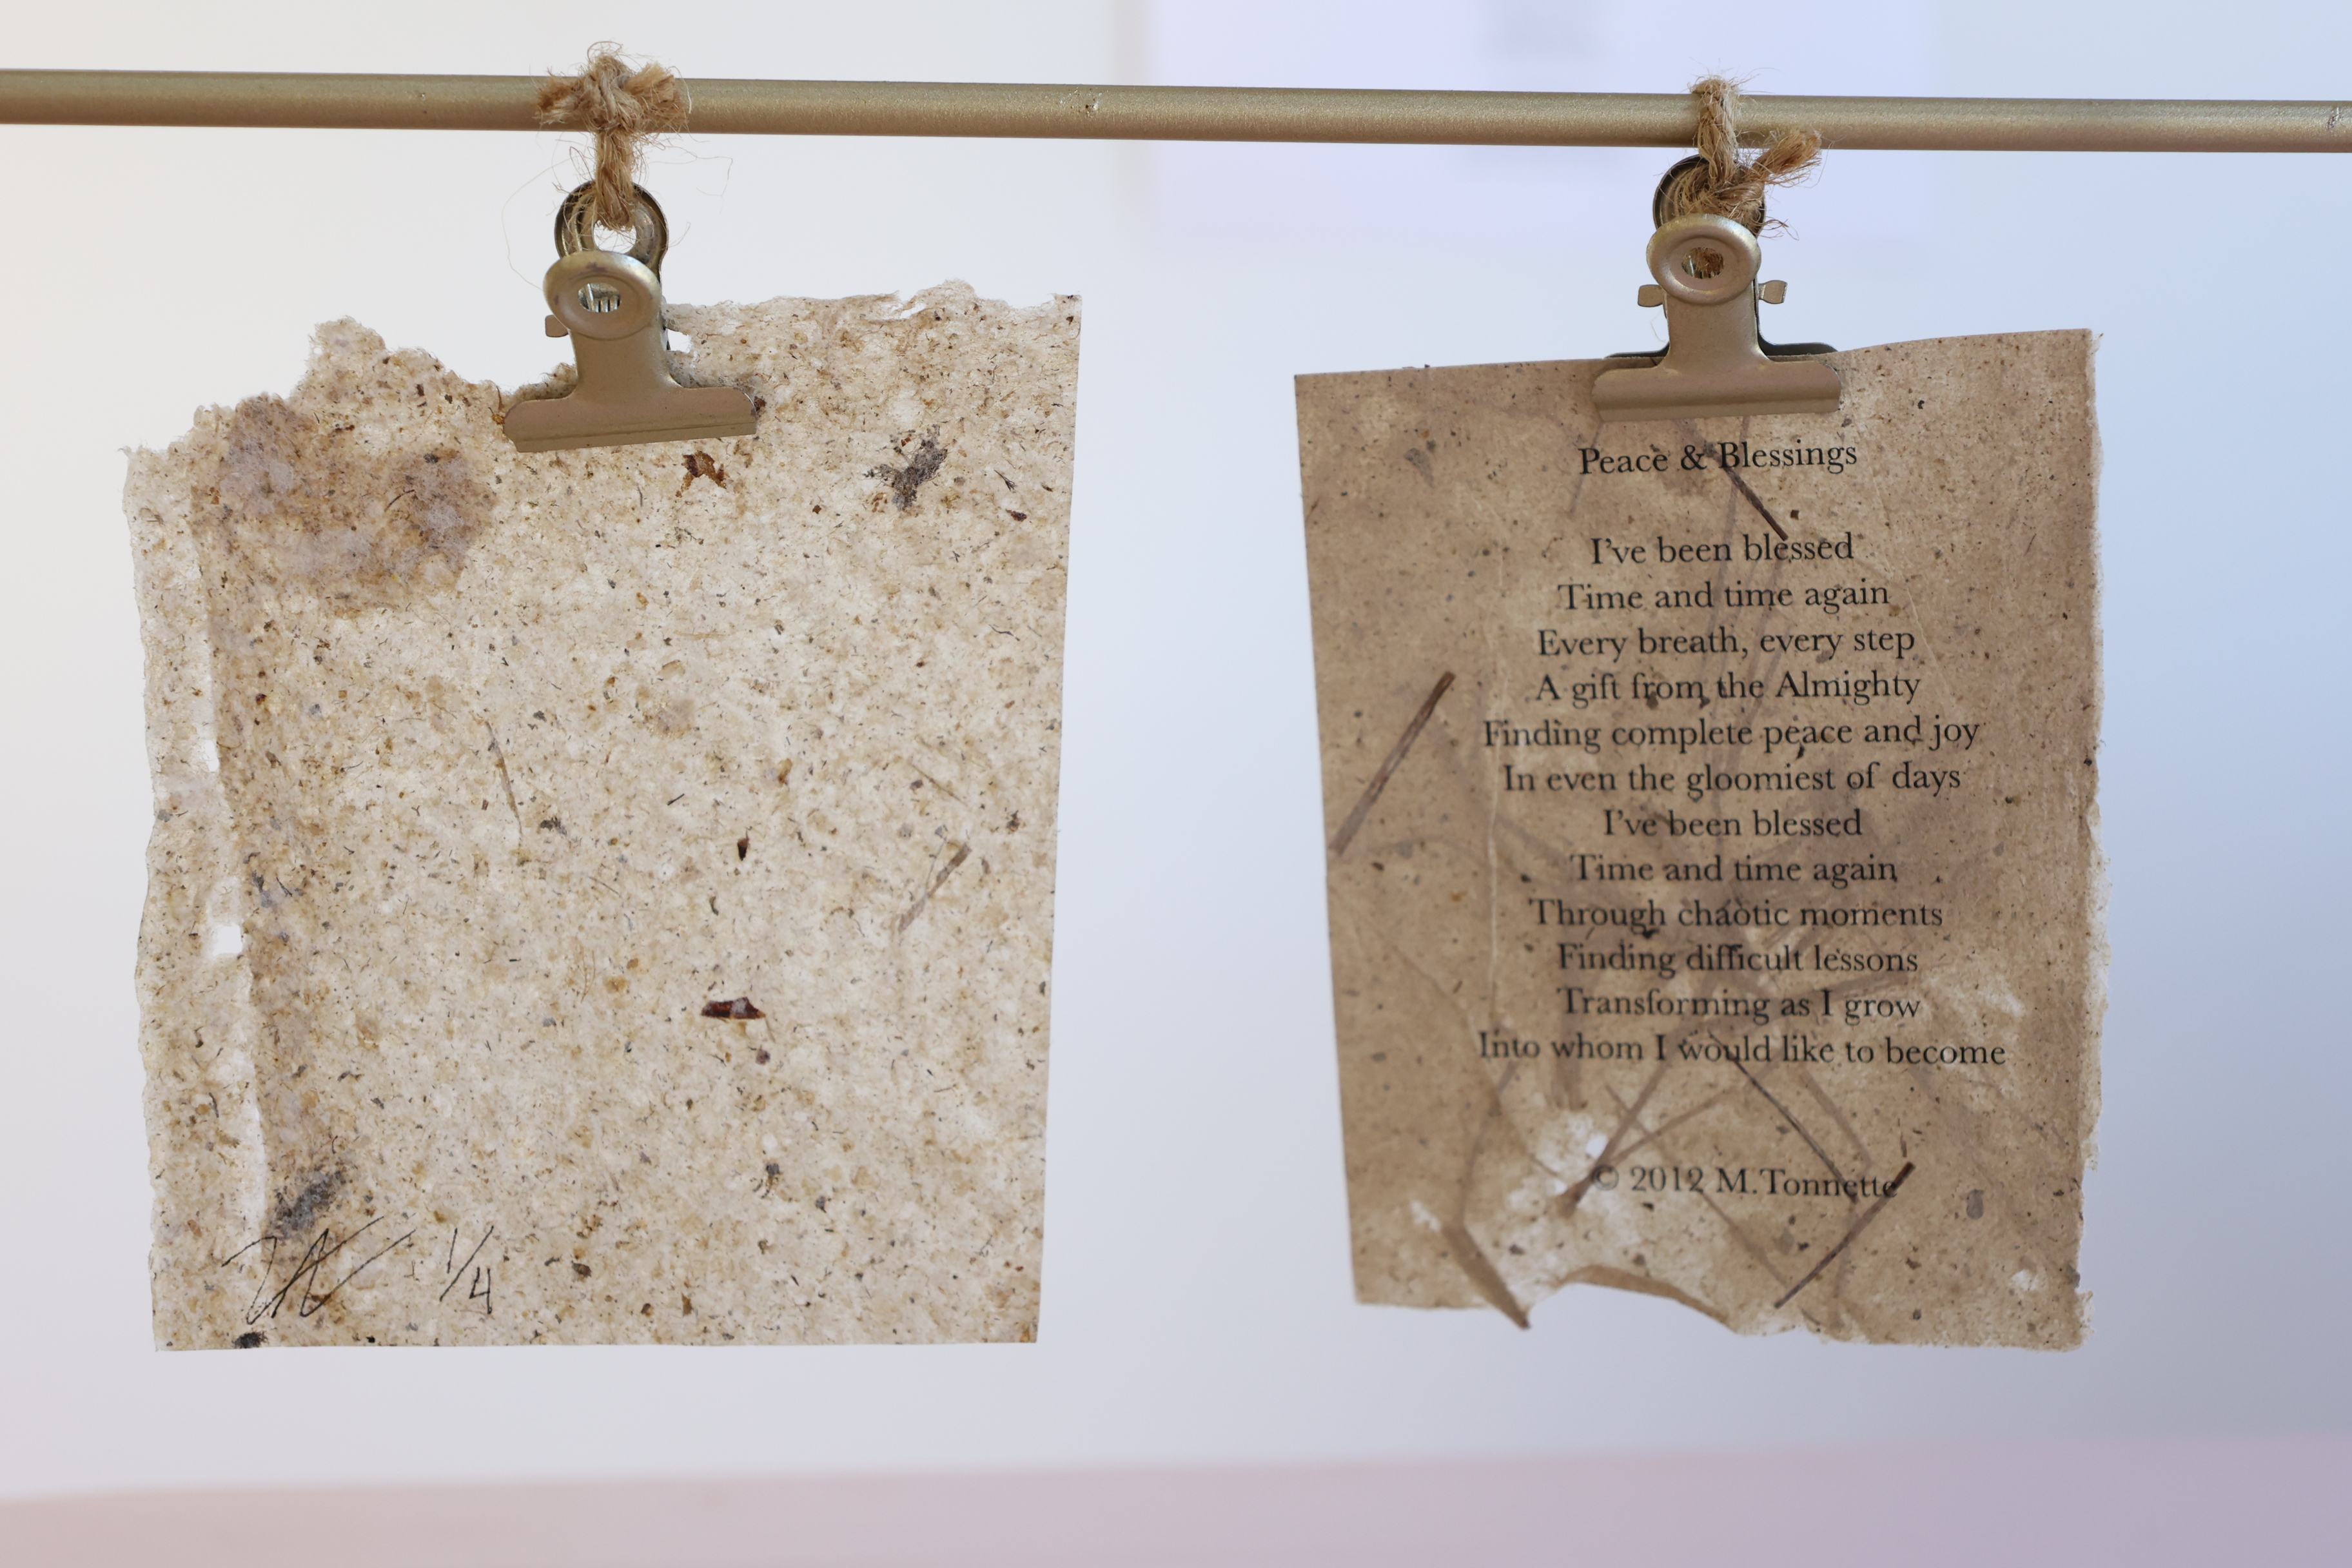 1/4
Peace & Blessings
I've been blessed
Time and time again
Every breath, every step
A gift from the Almighty
Finding complete peace and joy
In even the gloomiest of days
I've been blessed
Time and time again
Through chaotic moments
Finding difficult lessons
Transforming as I grow
Into whom I would like to become
© 2012 M.Tonnette